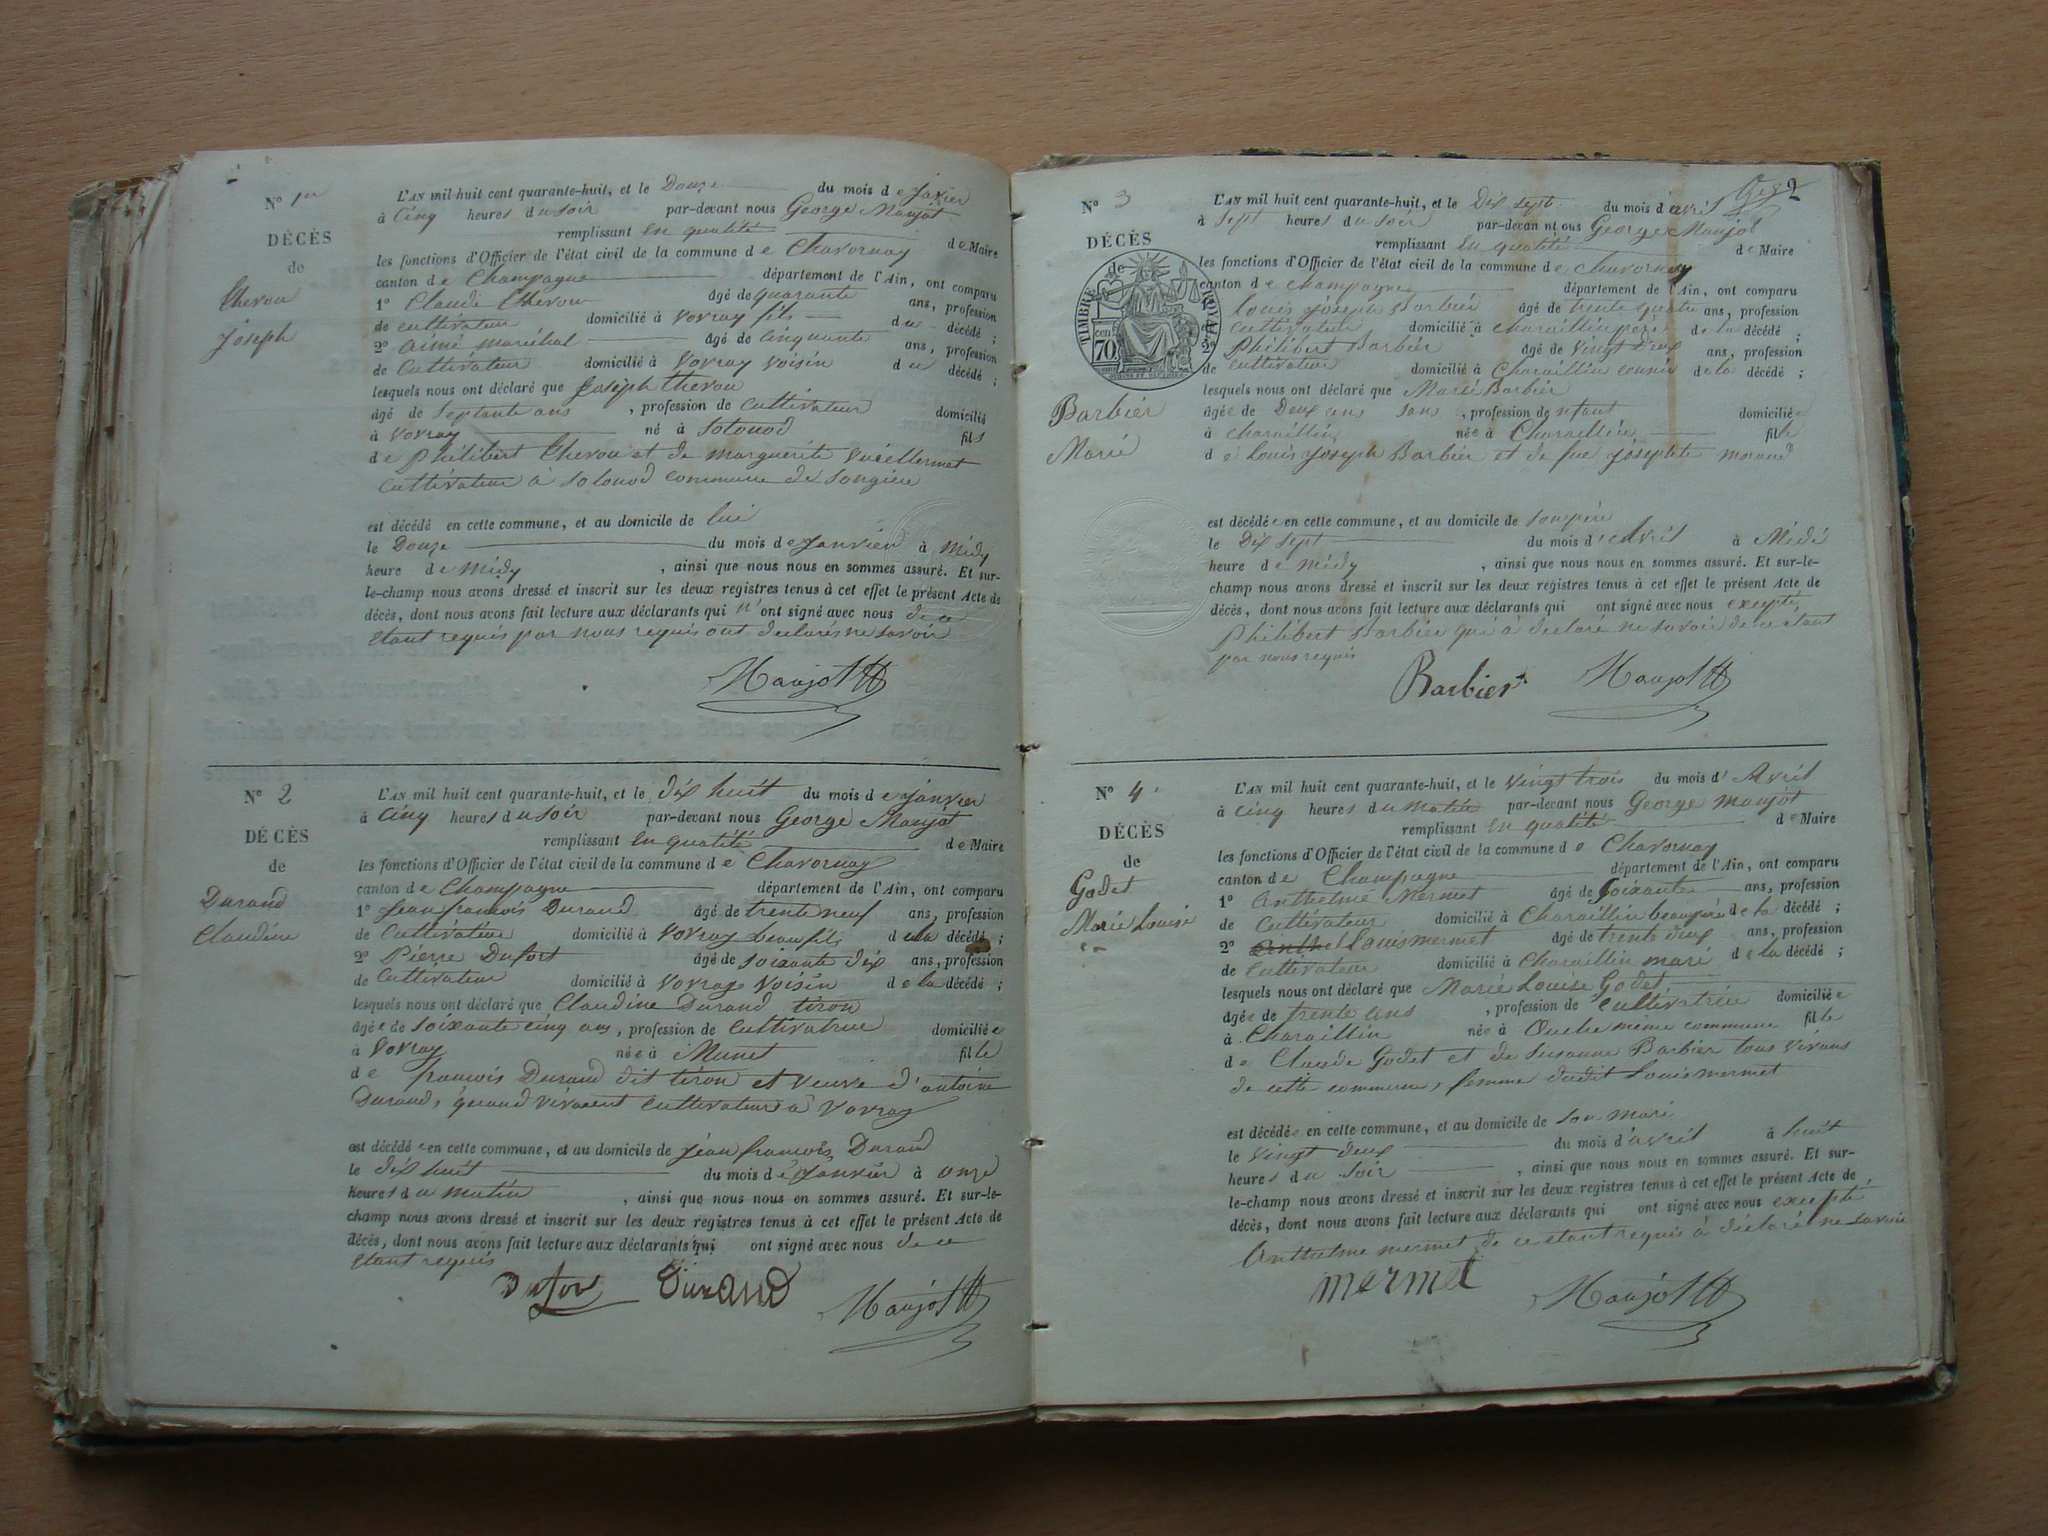 N° 1er
DÉCÈS
de
Thevou
Joseph
L'AN mil huit cent quarante-huit, et le Douze du mois de Janvier
à Cinq heures du soir par-devant nous George Maujot
remplissant en qualité de Maire
les fonctions d'Officier de l'état civil de la commune de Chavornay
canton de Champagne département de l'Ain, ont comparu
1° Claude Thevou âgé de quarante ans, profession
de cultivateur domicilié à Vovray fils du décédé ;
2° aimé maréchal âgé de Cinquante ans, profession
de Cultivateur domicilié à Vovray Voisin du décédé ;
lesquels nous ont déclaré que Joseph thevou
âgé de Septante ans , profession de Cultivateur domicilié
à Vovray né à Solonod fils
de Philibert Thevou et de marguerite
Cultivateur à Solonod commune de Songieu
est décédé en cette commune, et au domicile de lui
le Douze du mois de Janvier à Midy
heure de Midy , ainsi que nous nous en sommes assuré. Et sur-
le-champ nous avons dressé et inscrit sur les deux registres tenus à cet effet le présent Acte de
décès, dont nous avons fait lecture aux déclarants qui n'ont signé avec nous de ce
étant requis par nous requis ont declarés ne savoir
Maujot
N° 2
DÉCÈS
de
Durand
Claudine
L'AN mil huit cent quarante-huit, et le dix huit du mois de Janvier
à Cinq heures du soir par-devant nous George Maujot
remplissant en qualité de Maire
les fonctions d'Officier de l'état civil de la commune de Chavornay
canton de Champagne département de l'Ain, ont comparu
1° Jean françois Durand âgé de trente neuf ans, profession
de Cultivateur domicilié à Vovray beau fils de la décédé ;
2° Pierre Dufort âgé de soixante dix ans, profession
de Cultivateur domicilié à Vovray Voisin de la décédé ;
lesquels nous ont déclaré que Claudine Durand tiron
âgée de soixante cinq ans, profession de Cultivatrice domiciliée
à Vovray née à Munet fille
de françois Durand dit tiron et veuve d'antoine
Durand, quand vivaient Cultivateurs à Vovray
est décédée en cette commune, et au domicile de Jean françois Durand
le dix huit du mois de Janvier à onze
heures du matin , ainsi que nous nous en sommes assuré. Et sur-le-
champ nous avons dressé et inscrit sur les deux registres tenus à cet effet le présent Acte de
décès, dont nous avons fait lecture aux déclarants qui ont signé avec nous de ce
étant requis
Dufor Durand Maujot
2
N° 3
DÉCÈS
de
TIMBRE ROYAL
cen 70
Barbier
Marie
L'AN mil huit cent quarante-huit, et le Dix sept du mois d'avril
à Sept heures du soir par-devan nt ous George Maujot
remplissant en qualité de Maire
les fonctions d'Officier de l'état civil de la commune de Chavornay
canton de Champagne département de l'Ain, ont comparu
Louis Joseph Barbier âgé de trente quatre ans, profession
Cultivateur domicilié à de la décédé ;
2° Philibert Barbier âgé de Vingt deux ans, profession
de Cultivateur domicilié à Charaillin cousin de la décédé ;
lesquels nous ont déclaré que Marie Barbier
âgée de Deux ans sans , profession denfant domiciliée
à Charaillin née à Charaillin fille
de Louis Joseph Barbier et de feue Josephte morand
est décédée en cette commune, et au domicile de son père
le Dix Sept du mois d'avril à Midi
heure de Midy , ainsi que nous nous en sommes assuré. Et sur-le-
champ nous avons dressé et inscrit sur les deux registres tenus à cet effet le présent Acte de
décès, dont nous avons fait lecture aux déclarants qui ont signé avec nous excepté,
Philibert Barbier qui à declaré ne savoir de ce étant
par nous requis
Barbier Maujot
N° 4
DÉCÈS
de
Godet
Marie Louise
L'AN mil huit cent quarante-huit, et le Vingt trois du mois d'Avril
à Cinq heures du matin par-devant nous George Maujot
remplissant en qualité de Maire
les fonctions d'Officier de l'état civil de la commune de Chavornay
canton de Champagne département de l'Ain, ont comparu
1° Anthelme Mermet âgé de Soixante ans, profession
de Cultivateur domicilié à Charaillin beaupère de la décédé ;
2° Louis mermet âgé de trente deux ans, profession
de Cultivateur domicilié à Charaillin mari de la décédé ;
lesquels nous ont déclaré que Marie Louise Godet
âgée de trente ans , profession de Cultivatrice domiciliée
à Charaillin née à Ouche meme commune fille
de Claude Godet et de Susanne Barbier tous vivans
de cette commune, femme dudit Louis mermet
est décédée en cette commune, et au domicile de son mari
le Vingt deux du mois d'avril à huit
heures du soir , ainsi que nous nous en sommes assuré. Et sur-
le-champ nous avons dressé et inscrit sur les deux registres tenus à cet effet le présent Acte de
décès, dont nous avons fait lecture aux déclarants qui ont signé avec nous excepté
Anthelme mermet de ce étant requis à déclaré ne savoir
mermet Maujot